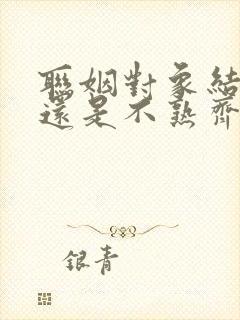 聯姻對象結
還是不熟齊
銀青